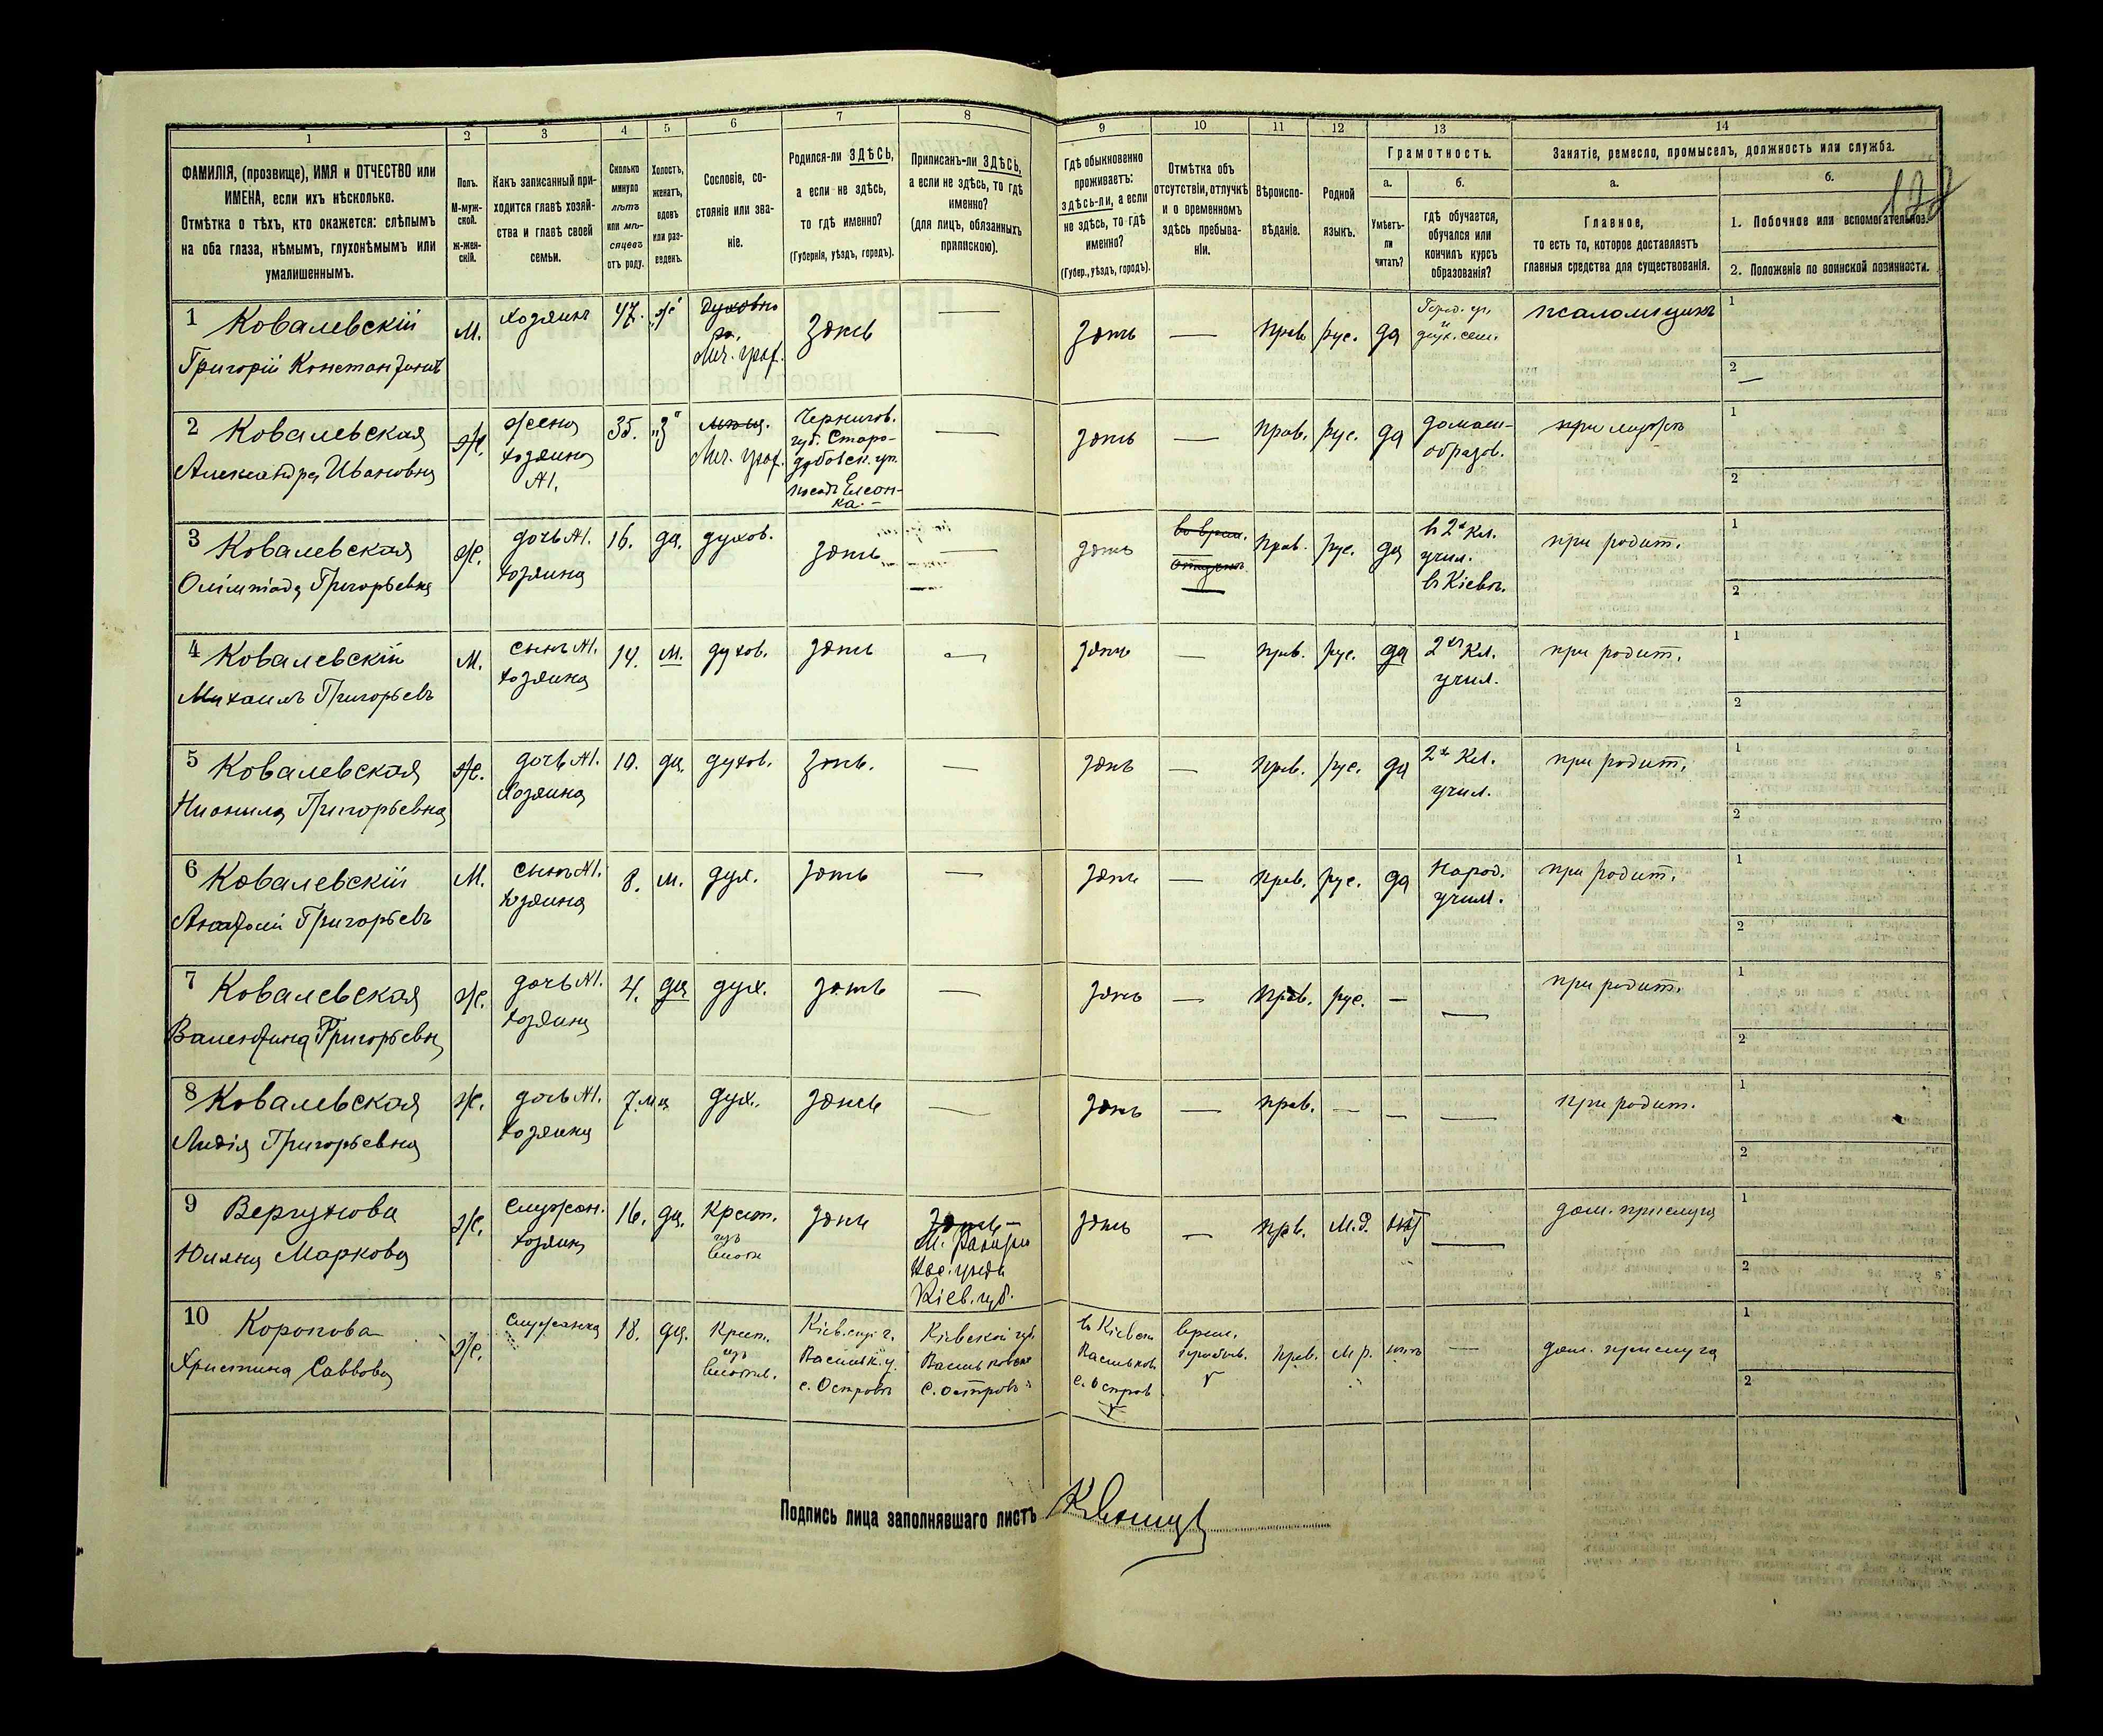 1
2
3
4
5
6
7
8
9
10
11
12
13
14
ФАМИЛІЯ, (прозвище), ИМЯ и ОТЧЕСТВО или
ИМЕНА, если ихъ нѣсколько.
Отмѣтка о тѣхъ, кто окажется: слѣпымъ
на оба глаза, нѣмымъ, глухонѣмымъ или
умалишеннымъ.
Полъ.
М-муж-
ской.
Ж-жен-
скій.
Какъ записанный при-
ходится главѣ хозяй-
ства и главѣ своей
семьи.
Сколько
минуло
лѣтъ
или мѣ-
сяцевъ
отъ роду.
Холостъ,
женатъ,
вдовъ
или раз-
веденъ.
Сословіе, со-
стояніе или зва-
ніе.
Родился-ли ЗДѢСЬ,
а если не здѣсь,
то гдѣ именно?
(Губернія, уѣздъ, городъ).
Приписанъ-ли ЗДѢСЬ,
а если не здѣсь, то гдѣ
именно?
(для лицъ, обязанныхъ
припискою).
Гдѣ обыкновенно
проживаетъ:
здѣсь-ли, а если
не здѣсь, то гдѣ
именно?
(Губер., уѣздъ, городъ).
Отмѣтка объ
отсутствіи, отлучкѣ
и о временномъ
здѣсь пребыва-
ніи.
Вѣроиспо-
вѣданіе.
Родной
языкъ.
Грамотность.
а.
Умѣетъ-
ли
читать?
б.
гдѣ обучается,
обучался или
кончилъ курсъ
образованія?
Занятіе, ремесло, промыселъ, должность или служба.
а.
Главное,
то есть то, которое доставляетъ
главныя средства для существованія.
б.
1. Побочное или вспомогательное.
2. Положеніе по воинской повинности.
1 Ковалевскій
Григорій Константиновъ
М.
хозяинъ
47.
ж
Духовно
Лич. граж.
Здѣсь
—
здѣсь
—
прав.
рус.
да
Город. уч.
и
дух. сем.
псаломщикъ
1
2
—
2 Ковалевская
Александра Ивановна
ж.
жена
хозяина
№1.
35.
"З"
Лич. граж.
Чернигов.
губ. Старо-
дубовск. уѣ.
посадъ Елеон-
ка.
—
здѣсь
—
прав.
рус.
да
домаш-
образов.
при мужѣ
1
2
3 Ковалевская
Олимпіада Григорьевна
ж.
дочь №1.
хозяина
16.
дѣ.
духов.
здѣсь
—
здѣсь
—
прав.
рус.
да
въ 2х кл.
учил.
въ Кіевѣ.
при родит.
1
2
4 Ковалевскій
Михаилъ Григорьевъ
М.
сынъ №1.
хозяина
14.
М.
духов.
здѣсь
—
здѣсь
—
прав.
рус.
да
2хъ кл.
учил.
при родит.
1
2
5 Ковалевская
Нионила Григорьевна
ж.
дочь №1.
хозяина
10.
дѣ.
духов.
здѣсь.
—
здѣсь
—
прав.
рус.
да
2х кл.
учил.
при родит.
1
2
6 Ковалевскій
Анатолій Григорьевъ
М.
сынъ №1.
хозяина
8.
М.
дух.
здѣсь
—
здѣсь
—
прав.
рус.
да
народ.
учил.
при родит.
1
2
7 Ковалевская
Валентина Григорьевн
ж.
дочь №1.
хозяина
4.
дѣ
дух.
здѣсь
—
здѣсь
—
прав.
рус.
—
—
при родит.
1
2
8 Ковалевская
Лидія Григорьевна
ж.
дочь №1.
хозяина
7 м.
дух.
здѣсь
—
здѣсь
—
прав.
—
—
—
при родит.
1
2
9 Вергунова
Юлiяна Маркова
ж.
Служан.
хозяина
16.
дѣ.
Крест.
изъ
здѣсь
Здѣсь
Вас. уѣзда
Кіев. губ.
здѣсь
—
прав.
М.Р.
нѣт
—
дом. прислуга
1
2
10 Коропова
Христина Саввова
ж.
Служанка
18.
дѣ.
Крест.
изъ
Кіевс. г.
Васильк. у.
с. Островъ
Кіевской губ.
Васильковск
с. Островъ
въ Кіевск
Васильков
с. Остров
врем.
прав.
М р.
нѣтъ
—
дом. прислуга
1
2
Подпись лица заполнявшаго листъ